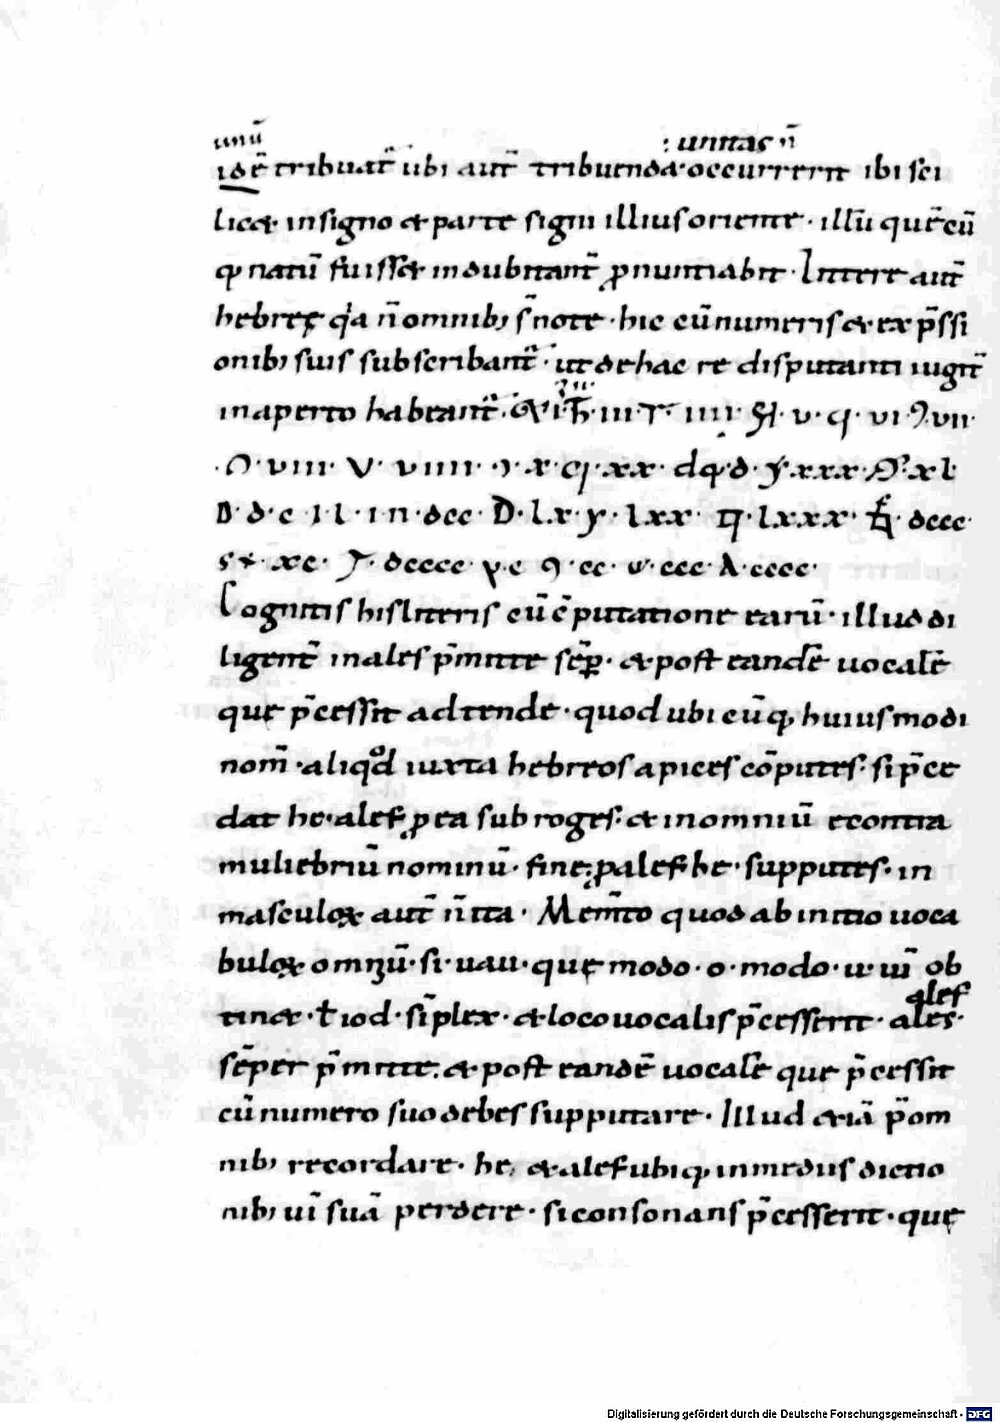 unū :unitas n̄
idē tribuat᷑ ubi aut̄ tribuenda·occurrerit ibi sci
licet insigno et parte signi illius oriente· illū quē cū
qͥ natū fuisset indubitant̄ ꝓnuntiabit· Littere aut̄
hebreę qͥa n̄omnib; s̄ note·hic cū numeris et ex p̄ssi
onib; suis subscribant᷑· ut de hac re disputanti iugit̄
inaperto habeant᷑· iii· iiii· v· vi vii·
viii· v viiii· x· xx· xxx· xl
D·l·x·y·lxx· lxxx· dccc·
xc· dcccc· c cc· ccc· cccc·
Cognitis hisliteris cū cp̄utatione earū· illud di
ligent̄ inales p̄mitte sēꝑ· et post eandē uocalē
que p̄cessit adtende·quod ubi cūq; huiusmodi
nom̄·aliqͦd iuxta hebreos apices cōputes· si p̄ce
dat he·alef ꝓ ea subroges·et inomniū econtra
muliebriū nominū· fine ꝓalef he· supputes· in
masculoꝝ aut̄ n̄ita· Mem̄to quod ab initio uoca
buloꝝ omniū·si·uau·quę modo·o·modo·u·uī ob
alef
tinet·ł iod·sīplex·et loco uocalis p̄cesserit·ales·
sēper p̄mitte·et post eandē uocalē que p̄cessit
cū numero suo debes supputare· Illud etiā p̄om
nib; recordare· he, et alef ubiq; inmediis dictio
nib; uī suā perdere· si consonans p̄cesserit·quę
Digitalisierung gefördert durch die Deutsche Forschungsgemeinschaft - DFG